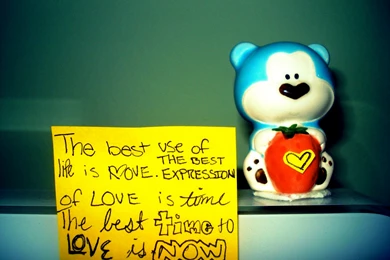 The best use of
life is LOVE. THE BEST EXPRESSION
of LOVE is time
The best time to
LOVE is NOW